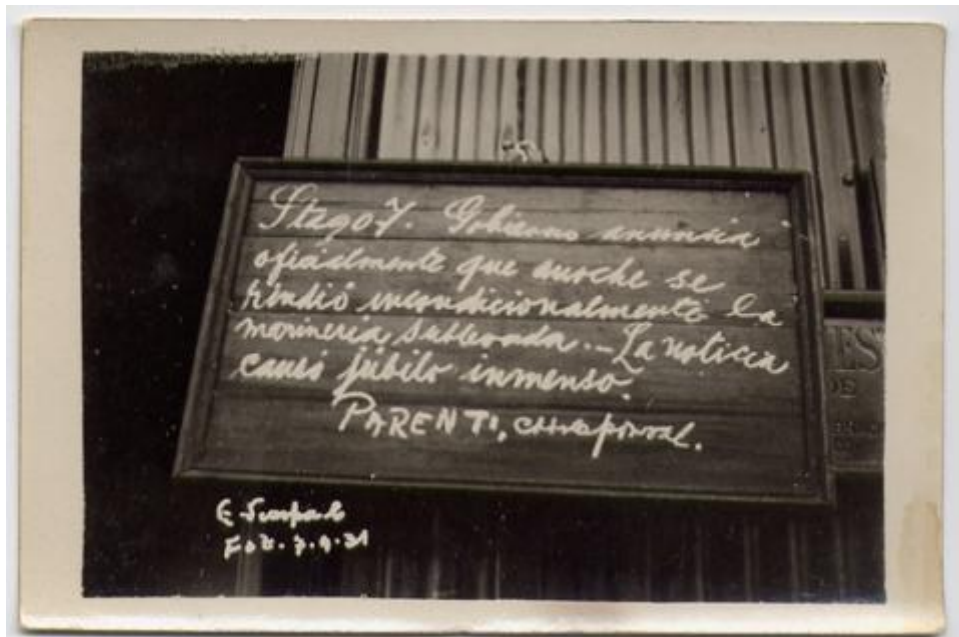 Stago 7. Gobierno anuncia
oficialmente que anoche se
rindió incondicionalmente la
marineria sublevada.- La noticia
causó júbilo inmenso.
PARENTI, corresponsal.
ES
DE
E.
Fot. 7.9.31